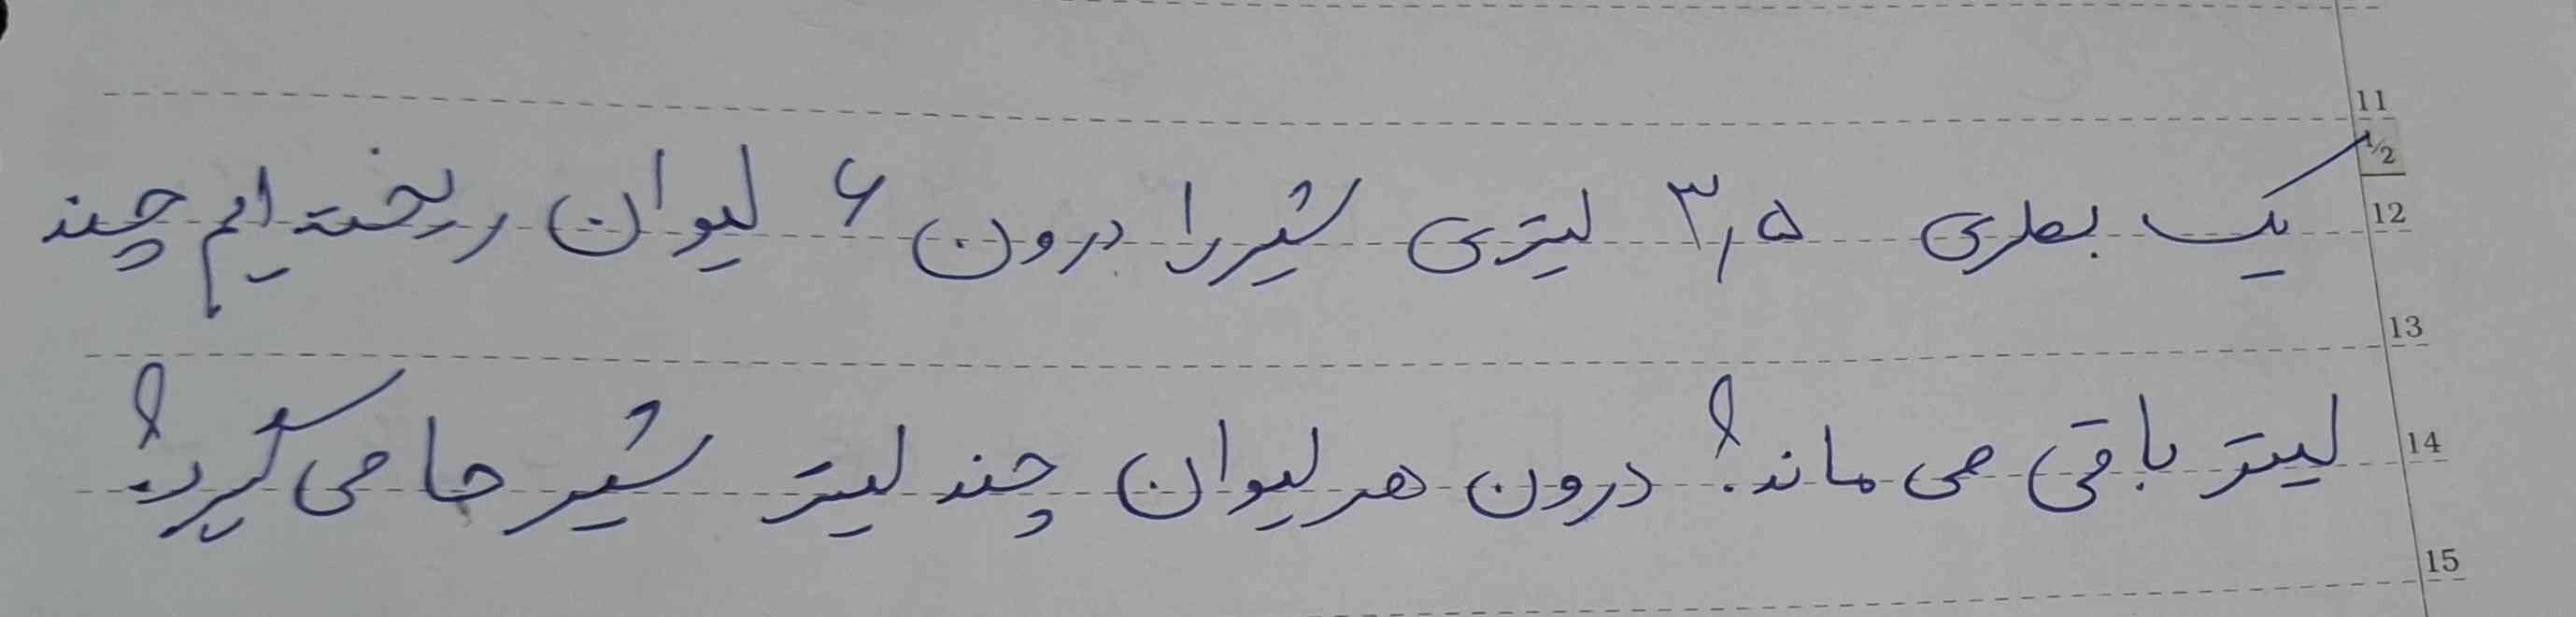 11
1/2
یک بطری ۳٫۵ لیتری شیر را درون ۶ لیوان ریخته ایم چند 12
13
لیتر باقی می ماند؟ درون هر لیوان چند لیتر شیر جا می گیرد؟ 14
15